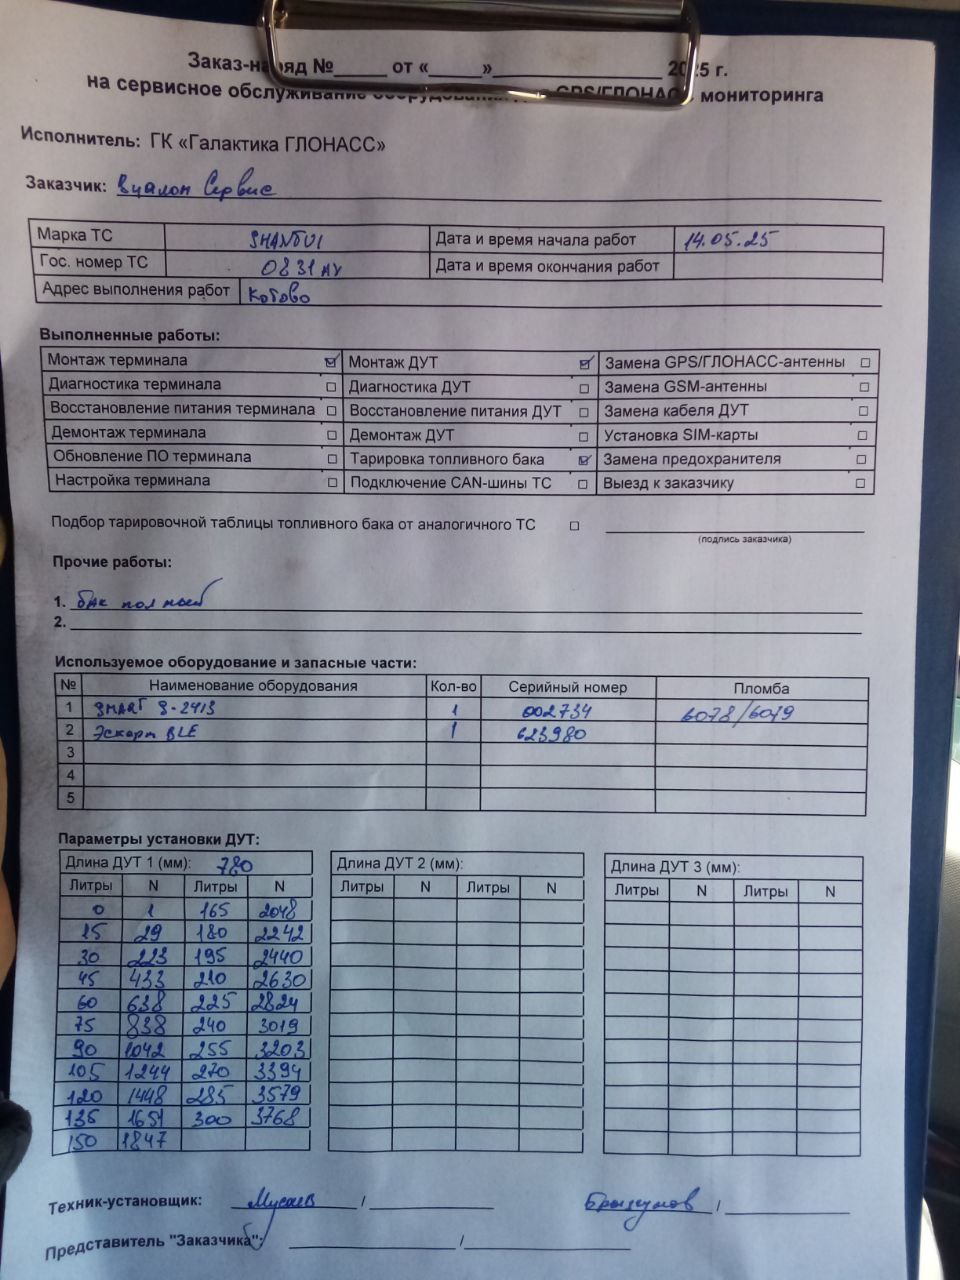 Заказ-наряд №_____ от «_____»_______________ 2025 г.
на сервисное обслуживание оборудования для GPS/ГЛОНАСС мониторинга
Исполнитель: ГК «Галактика ГЛОНАСС»
Заказчик: Виалон Сервис
Марка ТС SHANTUI Дата и время начала работ 14.05.25
Гос. номер ТС 0831 Дата и время окончания работ
Адрес выполнения работ Котово
Выполненные работы:
Монтаж терминала ☑ Монтаж ДУТ ☑ Замена GPS/ГЛОНАСС-антенны ☐
Диагностика терминала ☐ Диагностика ДУТ ☐ Замена GSM-антенны ☐
Восстановление питания терминала ☐ Восстановление питания ДУТ ☐ Замена кабеля ДУТ ☐
Демонтаж терминала ☐ Демонтаж ДУТ ☐ Установка SIM-карты ☐
Обновление ПО терминала ☐ Тарировка топливного бака ☑ Замена предохранителя ☐
Настройка терминала ☐ Подключение CAN-шины ТС ☐ Выезд к заказчику ☐
Подбор тарировочной таблицы топливного бака от аналогичного ТС ☐
(подпись заказчика)
Прочие работы:
1. бак полный
2.
Используемое оборудование и запасные части:
№ Наименование оборудования Кол-во Серийный номер Пломба
1 SMART S-2413 1 002734 6078/6079
2 Эскорт BLE 1 623980
3
4
5
Параметры установки ДУТ:
Длина ДУТ 1 (мм): 780 Длина ДУТ 2 (мм): Длина ДУТ 3 (мм):
Литры N Литры N Литры N Литры N Литры N Литры N
0 1 165 2048
15 29 180 2242
30 223 195 2440
45 433 210 2630
60 638 225 2824
75 838 240 3019
90 1042 255 3203
105 1244 270 3394
120 1448 285 3579
135 1651 300 3768
150 1847
Техник-установщик: Мусаев / /
Представитель "Заказчика": /